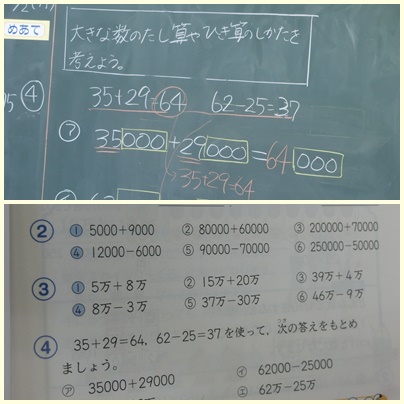 めあて
大きな数のたし算やひき算のしかたを
考えよう。
④ 35+29=64 62-25=37
㋐ 35000+29000=64000
35+29=64
2 ① 5000+9000 ② 80000+60000 ③ 200000+70000
④ 12000-6000 ⑤ 90000-70000 ⑥ 250000-50000
3 ① 5万+8万 ② 15万+20万 ③ 39万+4万
④ 8万-3万 ⑤ 37万-30万 ⑥ 46万-9万
4 35+29=64, 62-25=37 を使って, 次の答えをもとめ
つぎ
ましょう。
㋐ 35000+29000 ㋑ 62000-25000
㋓ 62万-25万